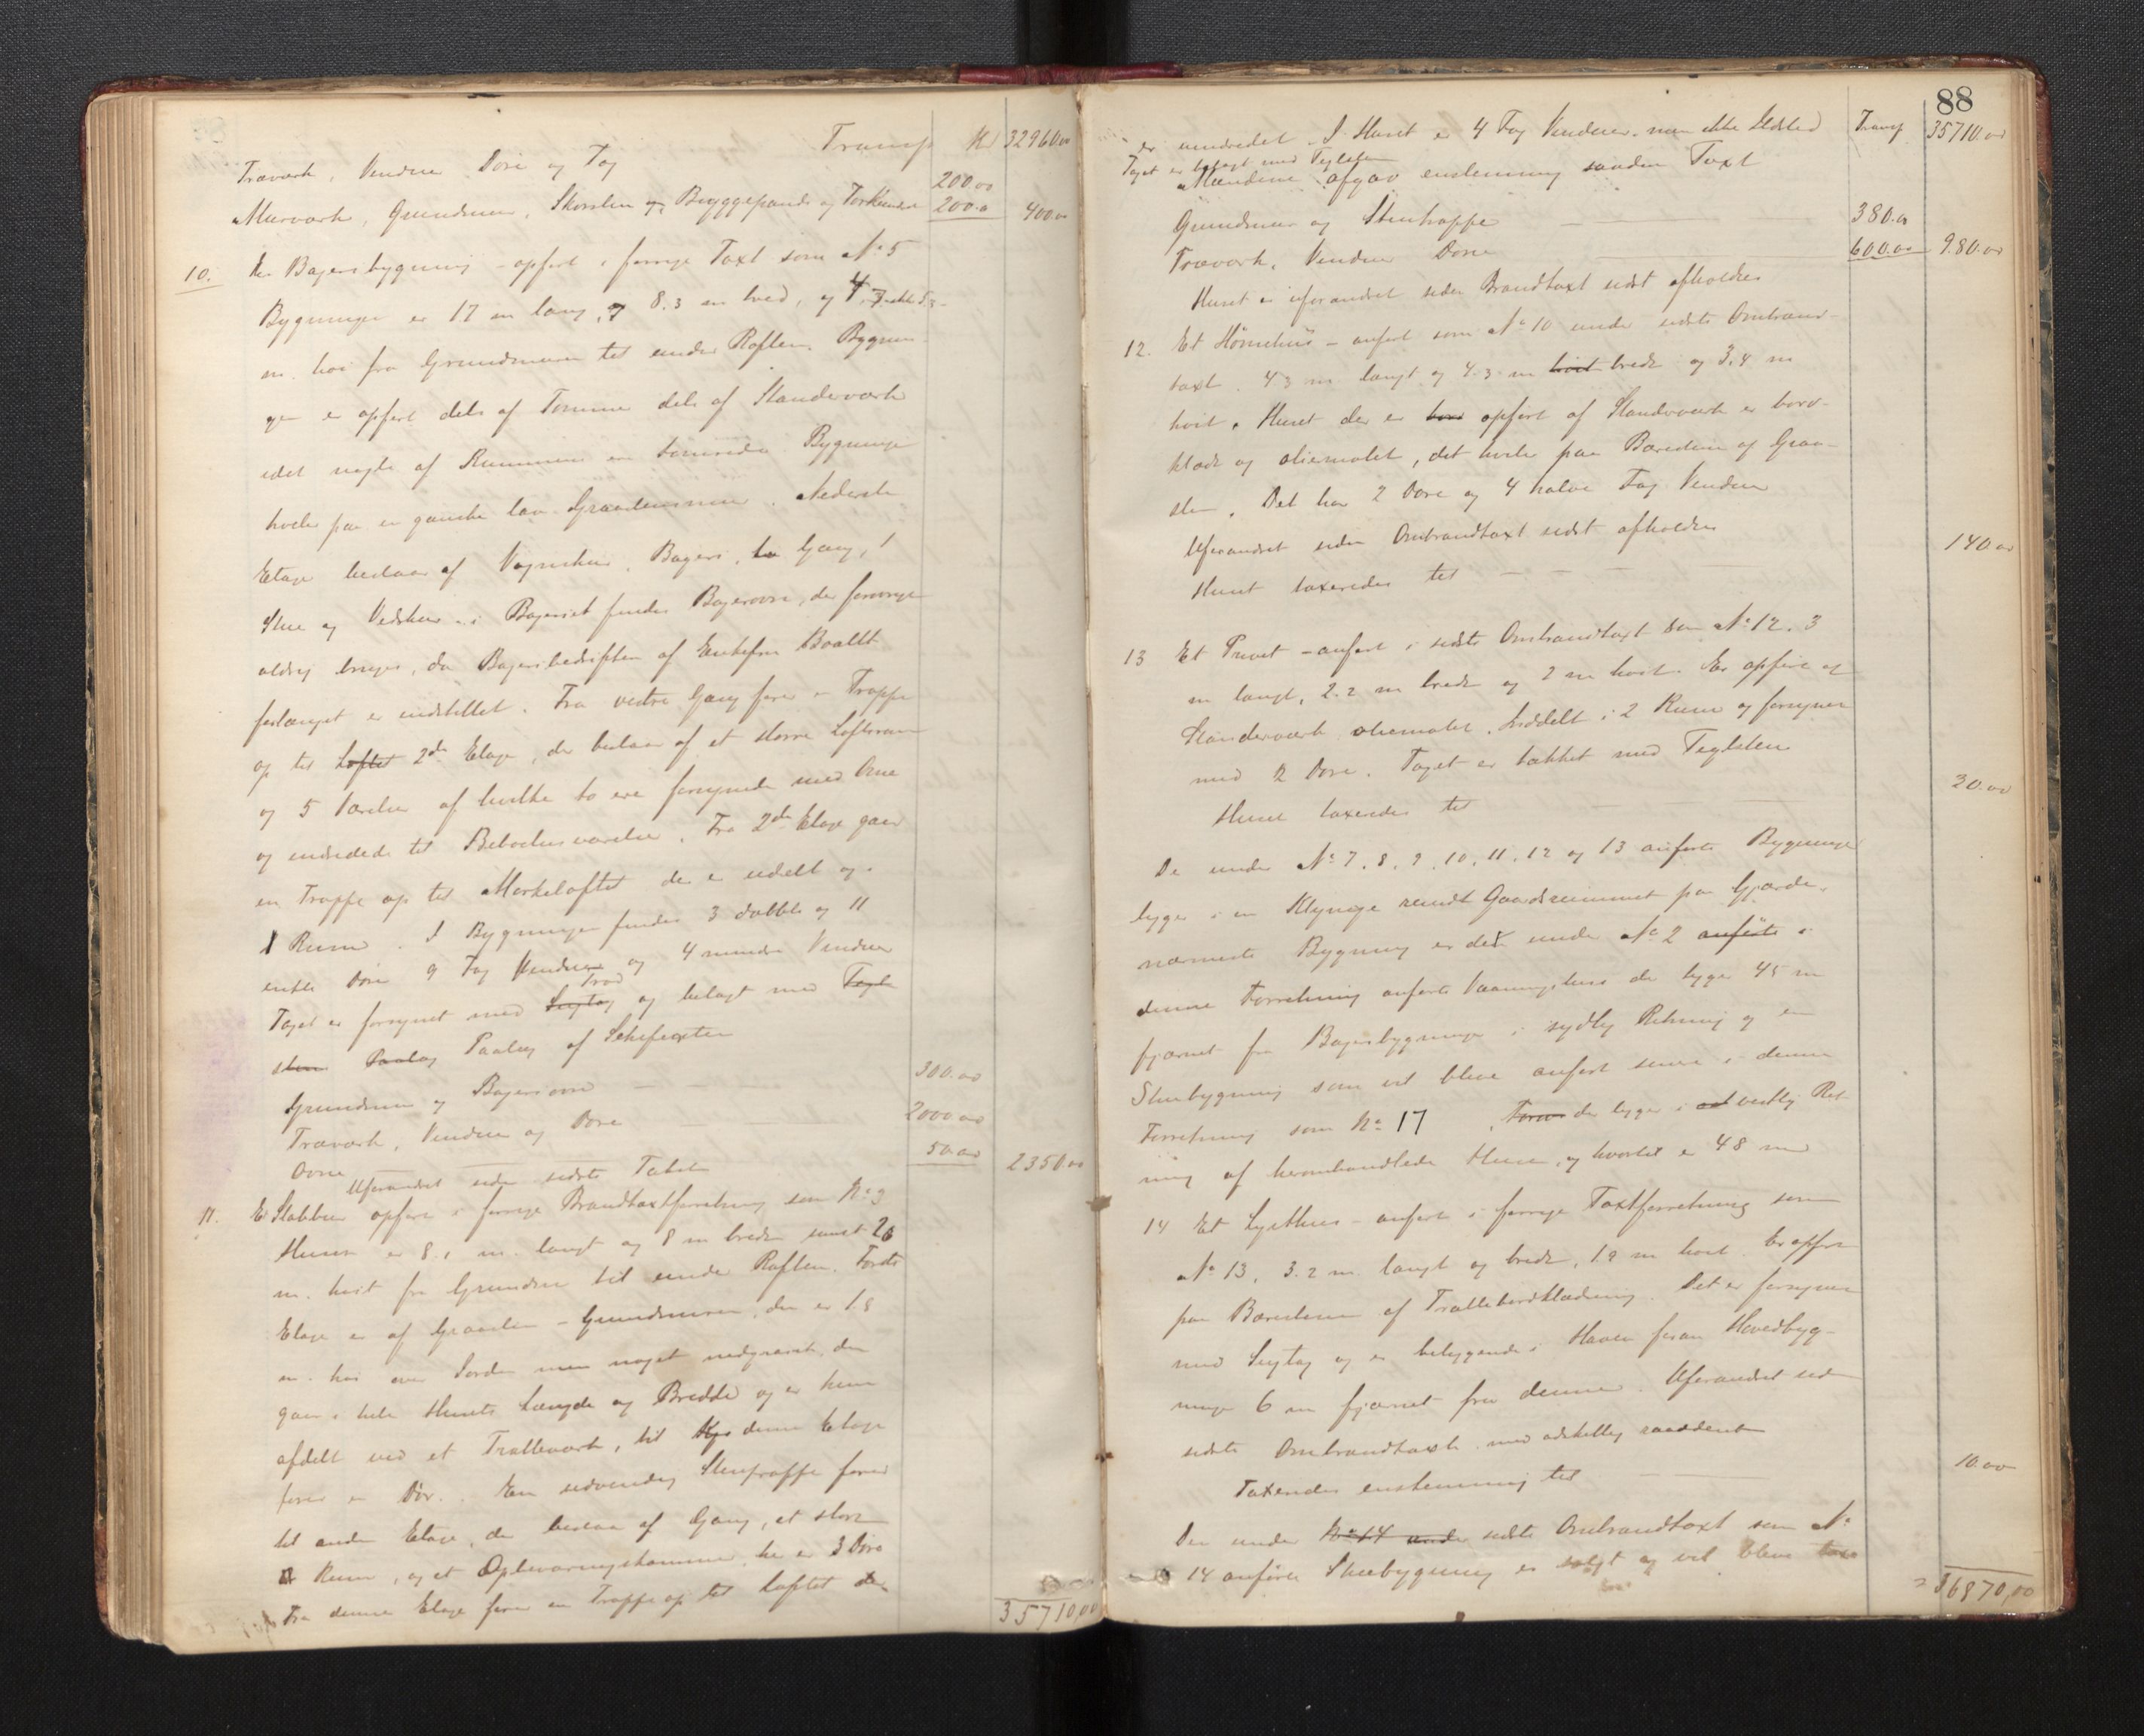 Transp Kr 32960.00
Træværk, Vinduer Döre og Tag 200.00
Murværk, Grundmur, Skorsten og Bryggepande og 200.00 400.00
10. En Bageribygning - opfört i forrige Taxt som No 5
Bygningen er 17 m lang, 8.3 m bred, og 4
m. höi fra Grundmuren til under Raften. Bygnin-
gen er opfört dels af Tömmer dels af Standerværk
idet nogle af Rummene er tömrede Bygningen
hviler paa en ganske lav Graastensmur. Nederste
Etage bestaar af Vognskur, Bageri, to Gang, 1
Stue og Vedskur - i Bageriet findes Bagerovn, der forövrigt
aldrig bruges, da Bageribedriften af Enkefru Boallt
forlængst er indstillet. Fra vestre Gang förer en Trappe
op til Loftet 2den Etage, der bestaar af et större Loftsrum
og 5 Værelser af hvilke to ere forsynede med Ovne
og indredede til Beboelsesværelser. Fra 2den Etage gaar
en Trappe op til Mörkeloftet der er udelt og
1 Rum. I Bygningen findes 3 dobble og 11
enkle Döre 9 Fag Vinduer og 4 mindre Vinduer
Taget er forsynet med Sugtag og belagt med Tegl-
sten Paalæg Paalæg af Skifersten
Grundmur og Bagerovn 300.00
Træværk, Vinduer og Döre 2000.00
Ovne 50.00 2350.00
Uforandret siden sidste Taxt
11. Et Stabbur opfört i forrige Brandtaxtforretning som No 9
Huset er 8.1 m. langt og 8 m bredt samt 26
m. höit fra Grunden til under Raften. Förste
Etage er af Graasten - Grundmuren, der er 1.8
m. höi over Jorden men noget nedgravet, den
gaar i hele Husets Længde og Bredde og er kun
afdelt ved et Tralleværk, til denne Etage
förer en Dör. En udvendig Stentrappe förer
til anden Etage, der bestaar af Gang, et stort
Rum, og et Opbevaringskammer, her er 3 Döre
Fra denne Etage förer en Trappe op til loftet der
35710,00
88
er uindredet. I Huset er 4 Fag Vinduer, men ikke Ildsted Transp 35710.00
Taget er belagt med Teglsten
Mændene afgav enstemmig saadan Taxt
Grundmur og Stentrappe 380.00
Træværk, Vinduer Döre 600.00 980.00
Huset er uforandret siden Brandtaxt sidst afholdtes
12. Et Hönsehus - anfört som No 10 under sidste Ombrand-
taxt. 4.3 m langt og 4.3 m höit bredt og 3.4 m
höit. Huset der er opfört af Standerværk er bord-
klædt og oliemalet, det hviler paa Bærestene af Graa-
sten. Det har 2 Döre og 4 halve Fag Vinduer
Uforandret siden Ombrandtaxt sidst afholdtes
Huset taxeredes til 140.00
13 Et Privet - anfört i sidste Ombrandtaxt som No 12. 3
m langt, 2.2 m bredt og 2 m höit. Er opfört af
Standerværk oliemalet, Inddelt i 2 Rum og forsynet
med 2 Döre. Taget er tækket med Teglsten
Huset taxeredes til 30.00
De under No 7. 8. 9. 10. 11. 12 og 13 anförte Bygninger
ligger i en Klynge rundt Gaardsrummet paa Gjærde.
nærmeste Bygning er det under No 2 anförte i
denne Forretning anförte Vaaningshus der ligger 45 m
fjærnet fra Bageribygningen i sydlig Retning og en
Stuebygning som vil blive anfört senere i denne
Forretning som No 17, der ligger i vestlig Ret-
ning af heromhandlede Huse, og hvortil er 48 m
14 Et Lysthus - anfört i forrige Taxtforretning som
No 13, 3.2 m langt og bredt, 19 m höit. Er opfört
paa Bærestene af Trallebordklædning. Det er forsynet
med Sugtag og er beliggende i Haven foran Hovedbyg-
ningen 6 m fjærnet fra denne. Uforandret siden
sidste Ombrandtaxt men adskillig raaddent
Taxeredes enstemmig til 10.00
Den under No 14 under sidste Ombrandtaxt som No
14 anförte Stuebygning er solgt og vil blive
36870,00